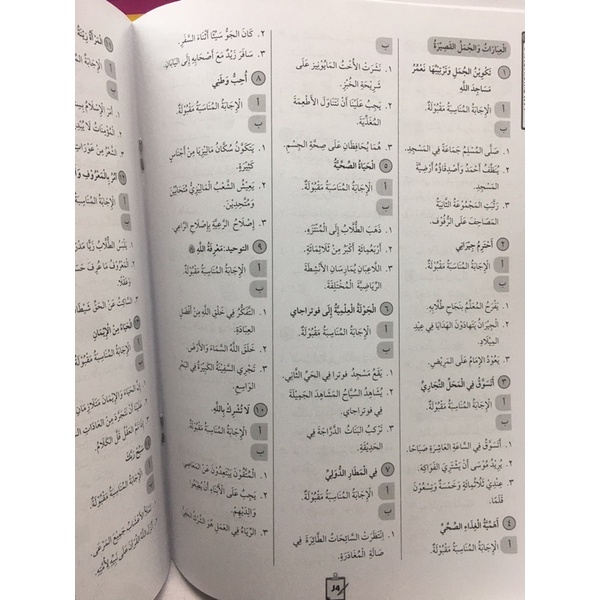 العِبَارَاتُ وَالجُمَلُ القَصِيْرَةُ
١ تَكْوِينُ الجُمَلِ وَتَرْتِيْبُهَا نَعْمُرُ
مَسَاجِدَ اللَّهِ
أ الإِجَابَةُ المُنَاسِبَةُ مَقْبُولَةٌ.
ب
١. صَلَّى المُسْلِمُ جَمَاعَةً فِي المَسْجِدِ.
٢. يُنَظِّفُ أَحْمَدُ وَأَصْدِقَاؤُهُ أَرْضِيَّةَ
المَسْجِدِ.
٣. رَتَّبَتِ المَجْمُوعَةُ الثَّانِيَةُ
المَصَاحِفَ عَلَى الرُّفُوفِ.
٢ أَحْتَرِمُ جِيْرَانِي
أ الإِجَابَةُ المُنَاسِبَةُ مَقْبُولَةٌ.
ب
١. يَفْرَحُ المُعَلِّمُ بِنَجَاحِ طُلَّابِهِ.
٢. الجِيْرَانُ يَتَهَادَوْنَ الهَدَايَا فِي عِيْدِ
المِيْلَادِ.
٣. يَعُودُ الإِمَامُ عَلَى المَرِيْضِ.
٣ أَتَسَوَّقُ فِي المَحَلِّ التِّجَارِيِّ
أ الإِجَابَةُ المُنَاسِبَةُ مَقْبُولَةٌ.
ب
١. أَتَسَوَّقُ فِي السَّاعَةِ العَاشِرَةِ صَبَاحًا.
٢. يُرِيْدُ مُوْسَى أَنْ يَشْتَرِيَ الفَوَاكِهَ.
٣. عِنْدِيْ ثَلَاثُمِائَةٍ وَخَمْسَةٌ وَتِسْعُوْنَ
قَلَمًا.
٤ أَهَمِّيَّةُ الغِذَاءِ الصِّحِّيِّ
أ الإِجَابَةُ المُنَاسِبَةُ مَقْبُولَةٌ.
ب
١. نَشَرَتْ الأُخْتُ المَايُونِيْزَ عَلَى
شَرِيْحَةِ الخُبْزِ.
٢. يَجِبُ عَلَيْنَا أَنْ نَتَنَاوَلَ الأَطْعِمَةَ
المُغَذِّيَةَ.
٣. هُمَا يُحَافِظَانِ عَلَى صِحَّةِ الجِسْمِ.
٥ الحَيَاةُ الصِّحِّيَّةُ
أ الإِجَابَةُ المُنَاسِبَةُ مَقْبُولَةٌ.
ب
١. ذَهَبَ الطُّلَّابُ إِلَى المُنْتَزَهِ.
٢. أَرْبَعُمِائَةٍ أَكْثَرُ مِنْ ثَلَاثِمِائَةٍ.
٣. اللَّاعِبَانِ يُمَارِسَانِ الأَنْشِطَةَ
الرِّيَاضِيَّةَ المُخْتَلِفَةَ.
٦ الجَوْلَةُ العِلْمِيَّةُ إِلَى فوتراجاي
أ الإِجَابَةُ المُنَاسِبَةُ مَقْبُولَةٌ.
ب
١. يَقَعُ مَسْجِدُ فوترا فِي الحَيِّ الثَّانِي.
٢. يُشَاهِدُ السيَّاحُ المَشَاهِدَ الجَمِيْلَةَ
فِي فوتراجاي.
٣. تَرْكَبُ البَنَاتُ الدَّرَّاجَةَ فِي
الحَدِيْقَةِ.
٧ فِي المَطَارِ الدُّوَلِيِّ
أ الإِجَابَةُ المُنَاسِبَةُ مَقْبُولَةٌ.
ب
١. اِنْتَظَرَتْ السَّائِحَاتُ الطَّائِرَةَ فِي
صَالَةِ المُغَادَرَةِ.
٢. كَانَ الجَوُّ سَيِّئًا أَثْنَاءَ السَّفَرِ.
٣. سَافَرَ زَيْدٌ مَعَ أَصْحَابِهِ إِلَى اليَابَانِ.
٨ أُحِبُّ وَطَنِي
أ الإِجَابَةُ المُنَاسِبَةُ مَقْبُولَةٌ.
ب
١. يَتَكَوَّنُ سُكَّانُ مَالِيْزِيَا مِنْ أَجْنَاسٍ
كَثِيْرَةٍ.
٢. يَعِيْشُ الشَّعْبُ المَالِيْزِيُّ مُتَحَابِّيْنَ
وَمُتَّحِدِيْنَ.
٣. إِصْلَاحُ الرَّعِيَّةِ بِإِصْلَاحِ الرَّاعِي
٩ التوحيد: مَعْرِفَةُ اللَّهِ
أ الإِجَابَةُ المُنَاسِبَةُ مَقْبُولَةٌ.
ب
١. التَّفَكُّرُ فِي خَلْقِ اللَّهِ مِنْ أَفْضَلِ
العِبَادَةِ.
٢. خَلَقَ اللَّهُ السَّمَاءَ وَالأَرْضَ.
٣. تَجْرِي السَّفِيْنَةُ الكَبِيْرَةُ فِي البَحْرِ
الوَاسِعِ.
١٠ لَا تُشْرِكْ بِاللَّهِ
أ الإِجَابَةُ المُنَاسِبَةُ مَقْبُولَةٌ.
ب
١. المُتَّقُوْنَ يَبْتَعِدُوْنَ عَنِ المَعَاصِي
٢. يَجِبُ عَلَى الأَبْنَاءِ أَنْ
وَالِدَيْهِمْ.
٣. الرِّيَاءُ فِي العَمَلِ هُوَ الشِّرْكُ
١١
أ الإِجَابَةُ المُنَاسِبَةُ
ب
١. أَمَرَ الإِسْلَامُ
٢. المُؤْمِنَاتُ
٣. الشَّعْرُ مِنْ
أ الإِجَابَةُ المُنَاسِبَةُ
ب
١. يَلْبَسُ الطُّلَّابُ زِيًّا
٢. المَعْرُوفُ مَا عُرِفَ
وَعَقْلًا.
٣. السَّاكِتُ عَنِ الحَقِّ شَيْطَانٌ
الحَيَاءُ مِنَ الإِيْمَانِ
أ الإِجَابَةُ المُنَاسِبَةُ مَقْبُولَةٌ
ب
١. إِنَّ الحَيَاءَ وَالإِيْمَانَ
٣. إِذَا تَمَّ العَقْلُ قَلَّ الكَلَامُ.
أ الإِجَابَةُ المُنَاسِبَةُ مَقْبُولَةٌ.
ب
J4